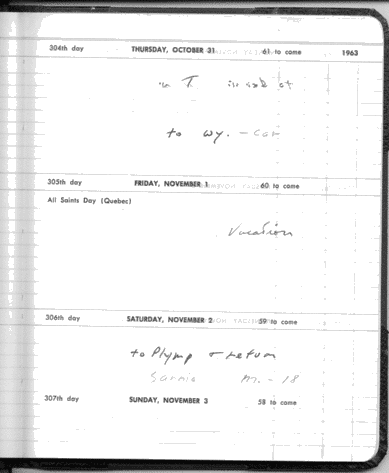 304th day THURSDAY, OCTOBER 31 61 to come 1963
T.
to wy. - car
305th day FRIDAY, NOVEMBER 1 60 to come
All Saints Day (Quebec)
Vacation
306th day SATURDAY, NOVEMBER 2 59 to come
to Plymp & return
M. - 18
307th day SUNDAY, NOVEMBER 3 58 to come